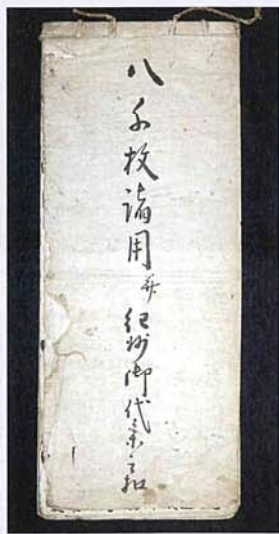 八千枚諸用并紀州御代参之扣